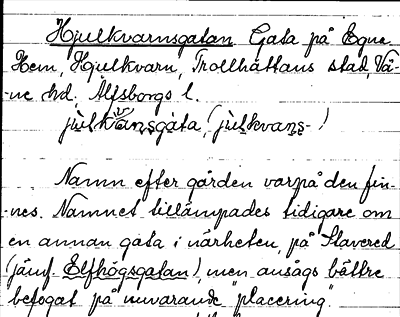 Hjulkvarnsgatan Gata på Egna
Hem, Hjulkvarn, Trollhättans stad, Vä-
-ne hd. Älfsborgs l.
julkvansgata, (julkvans- )
Namn efter gården varpå den fin-
-nes. Namnet tillämpades tidigare om
en annan gata i närheten, på Stavered
(jämf. Elfhögsgatan), men ansågs bättre
befogat på nuvarande "placering".